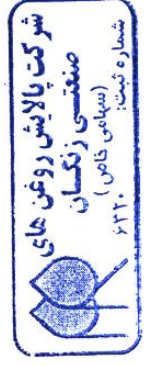 شرکت پالایش روغن های
صنعتی زنگان
(سهامی خاص)
شماره ثبت:
۶۲۲۰